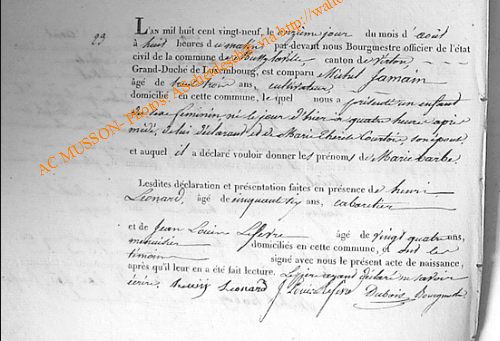 29
L'AN mil huit cent vingt-neuf, le onzième jour du mois d'août
à huit heures du matin par-devant nous Bourgmestre officier de l'état
civil de la commune de canton de Virton,
Grand-Duché de Luxembourg, est comparu Michel Jamain
âgé de trente trois ans, cultivateur
domicilié en cette commune, le quel nous a présenté un enfant
de sexe féminin, né le jour d'hier à quatre heures après
midi, de lui déclarant et de Marie Courtois, son épouse
et auquel il a déclaré vouloir donner les prénoms de Marie barbe.
Lesdites déclaration et présentation faites en présence de henri
Léonard, âgé de cinquante six ans, cabaretier
et de Jean Louis Lefevre âgé de vingt quatre ans,
menuisier domiciliés en cette commune, et ont les
témoins signé avec nous le présent acte de naissance,
après qu'il leur en a été fait lecture. Le père ayant déclaré ne savoir
écrire. Leonard J Louis Lefevre Dubois Bourgmestre
AC MUSSON- Photos: via http://